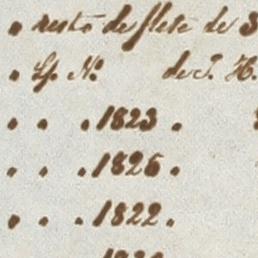 . resto de flete de 3
. Lp. Nº de J. H.
. . . 1823 .
. . . 1826 .
. . . 1822 .